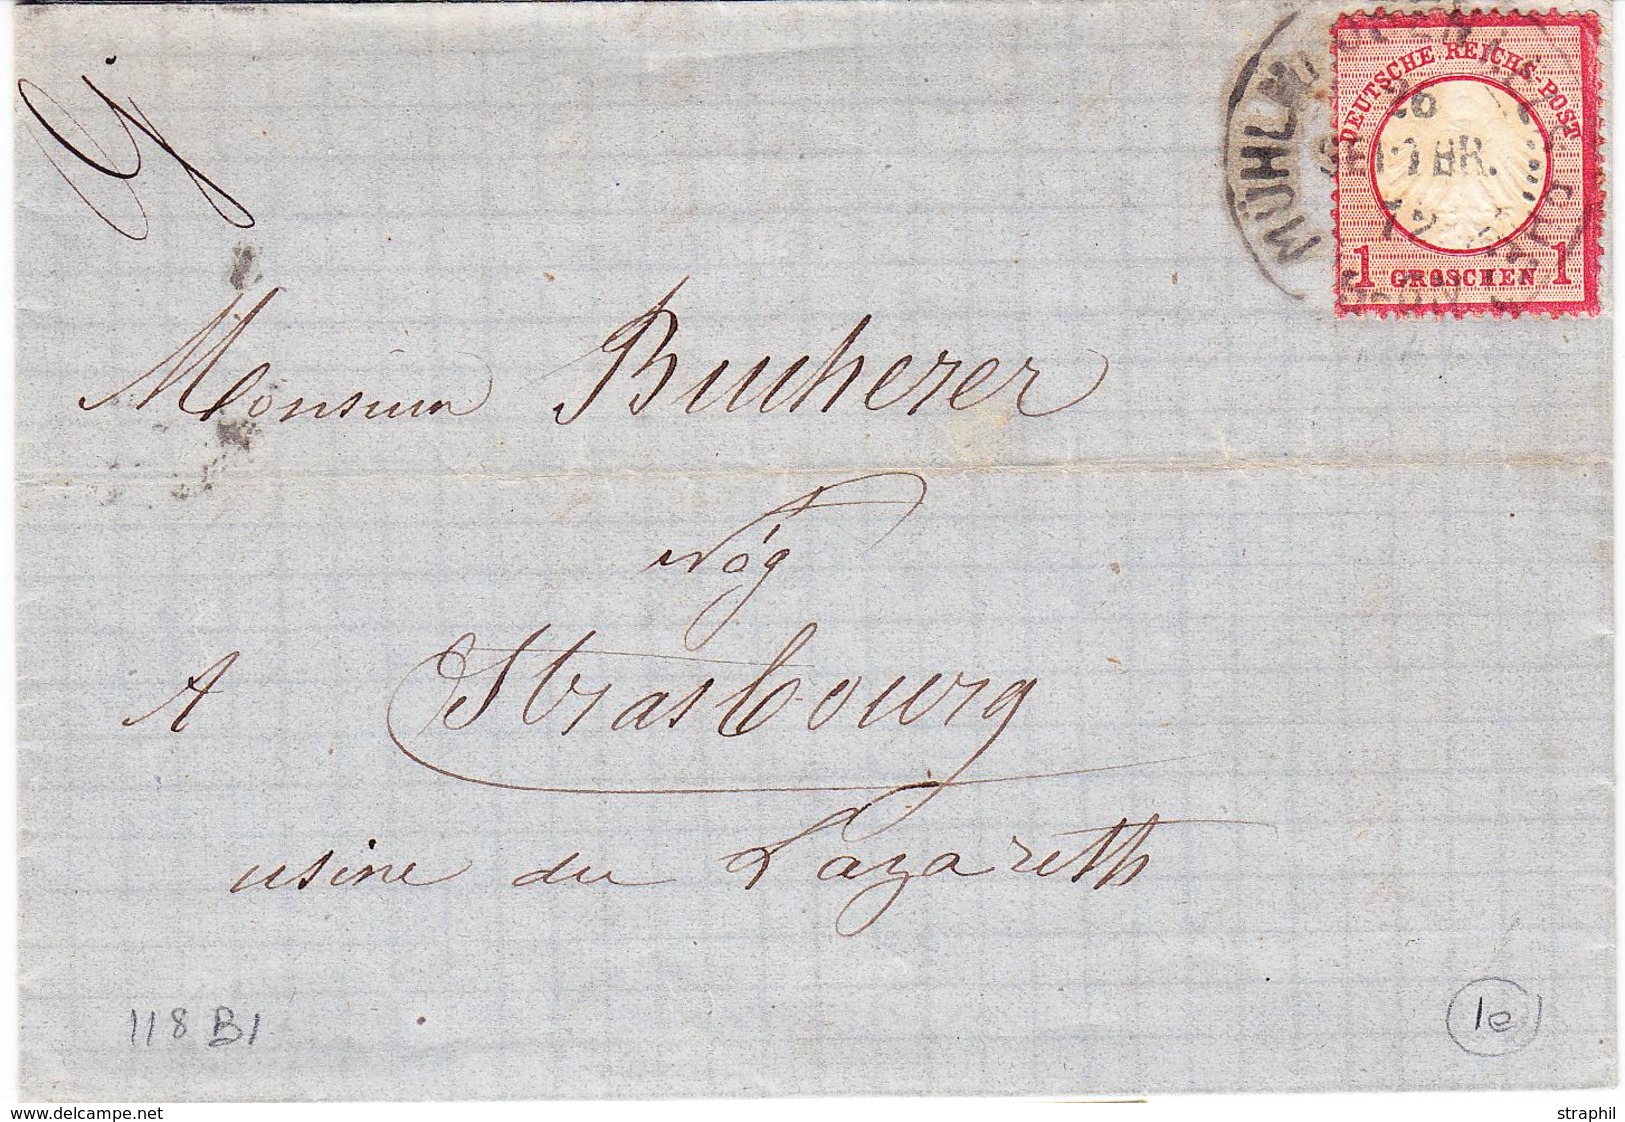 DEUTSCHE REICHS-POST
1 GROSCHEN 1
MÜHLH
SEPTBR.
72
Monsieur Bucherer
Nég
A Strasbourg
usine du Lazareth
118 B1
1e
www.delcampe.net
straphil